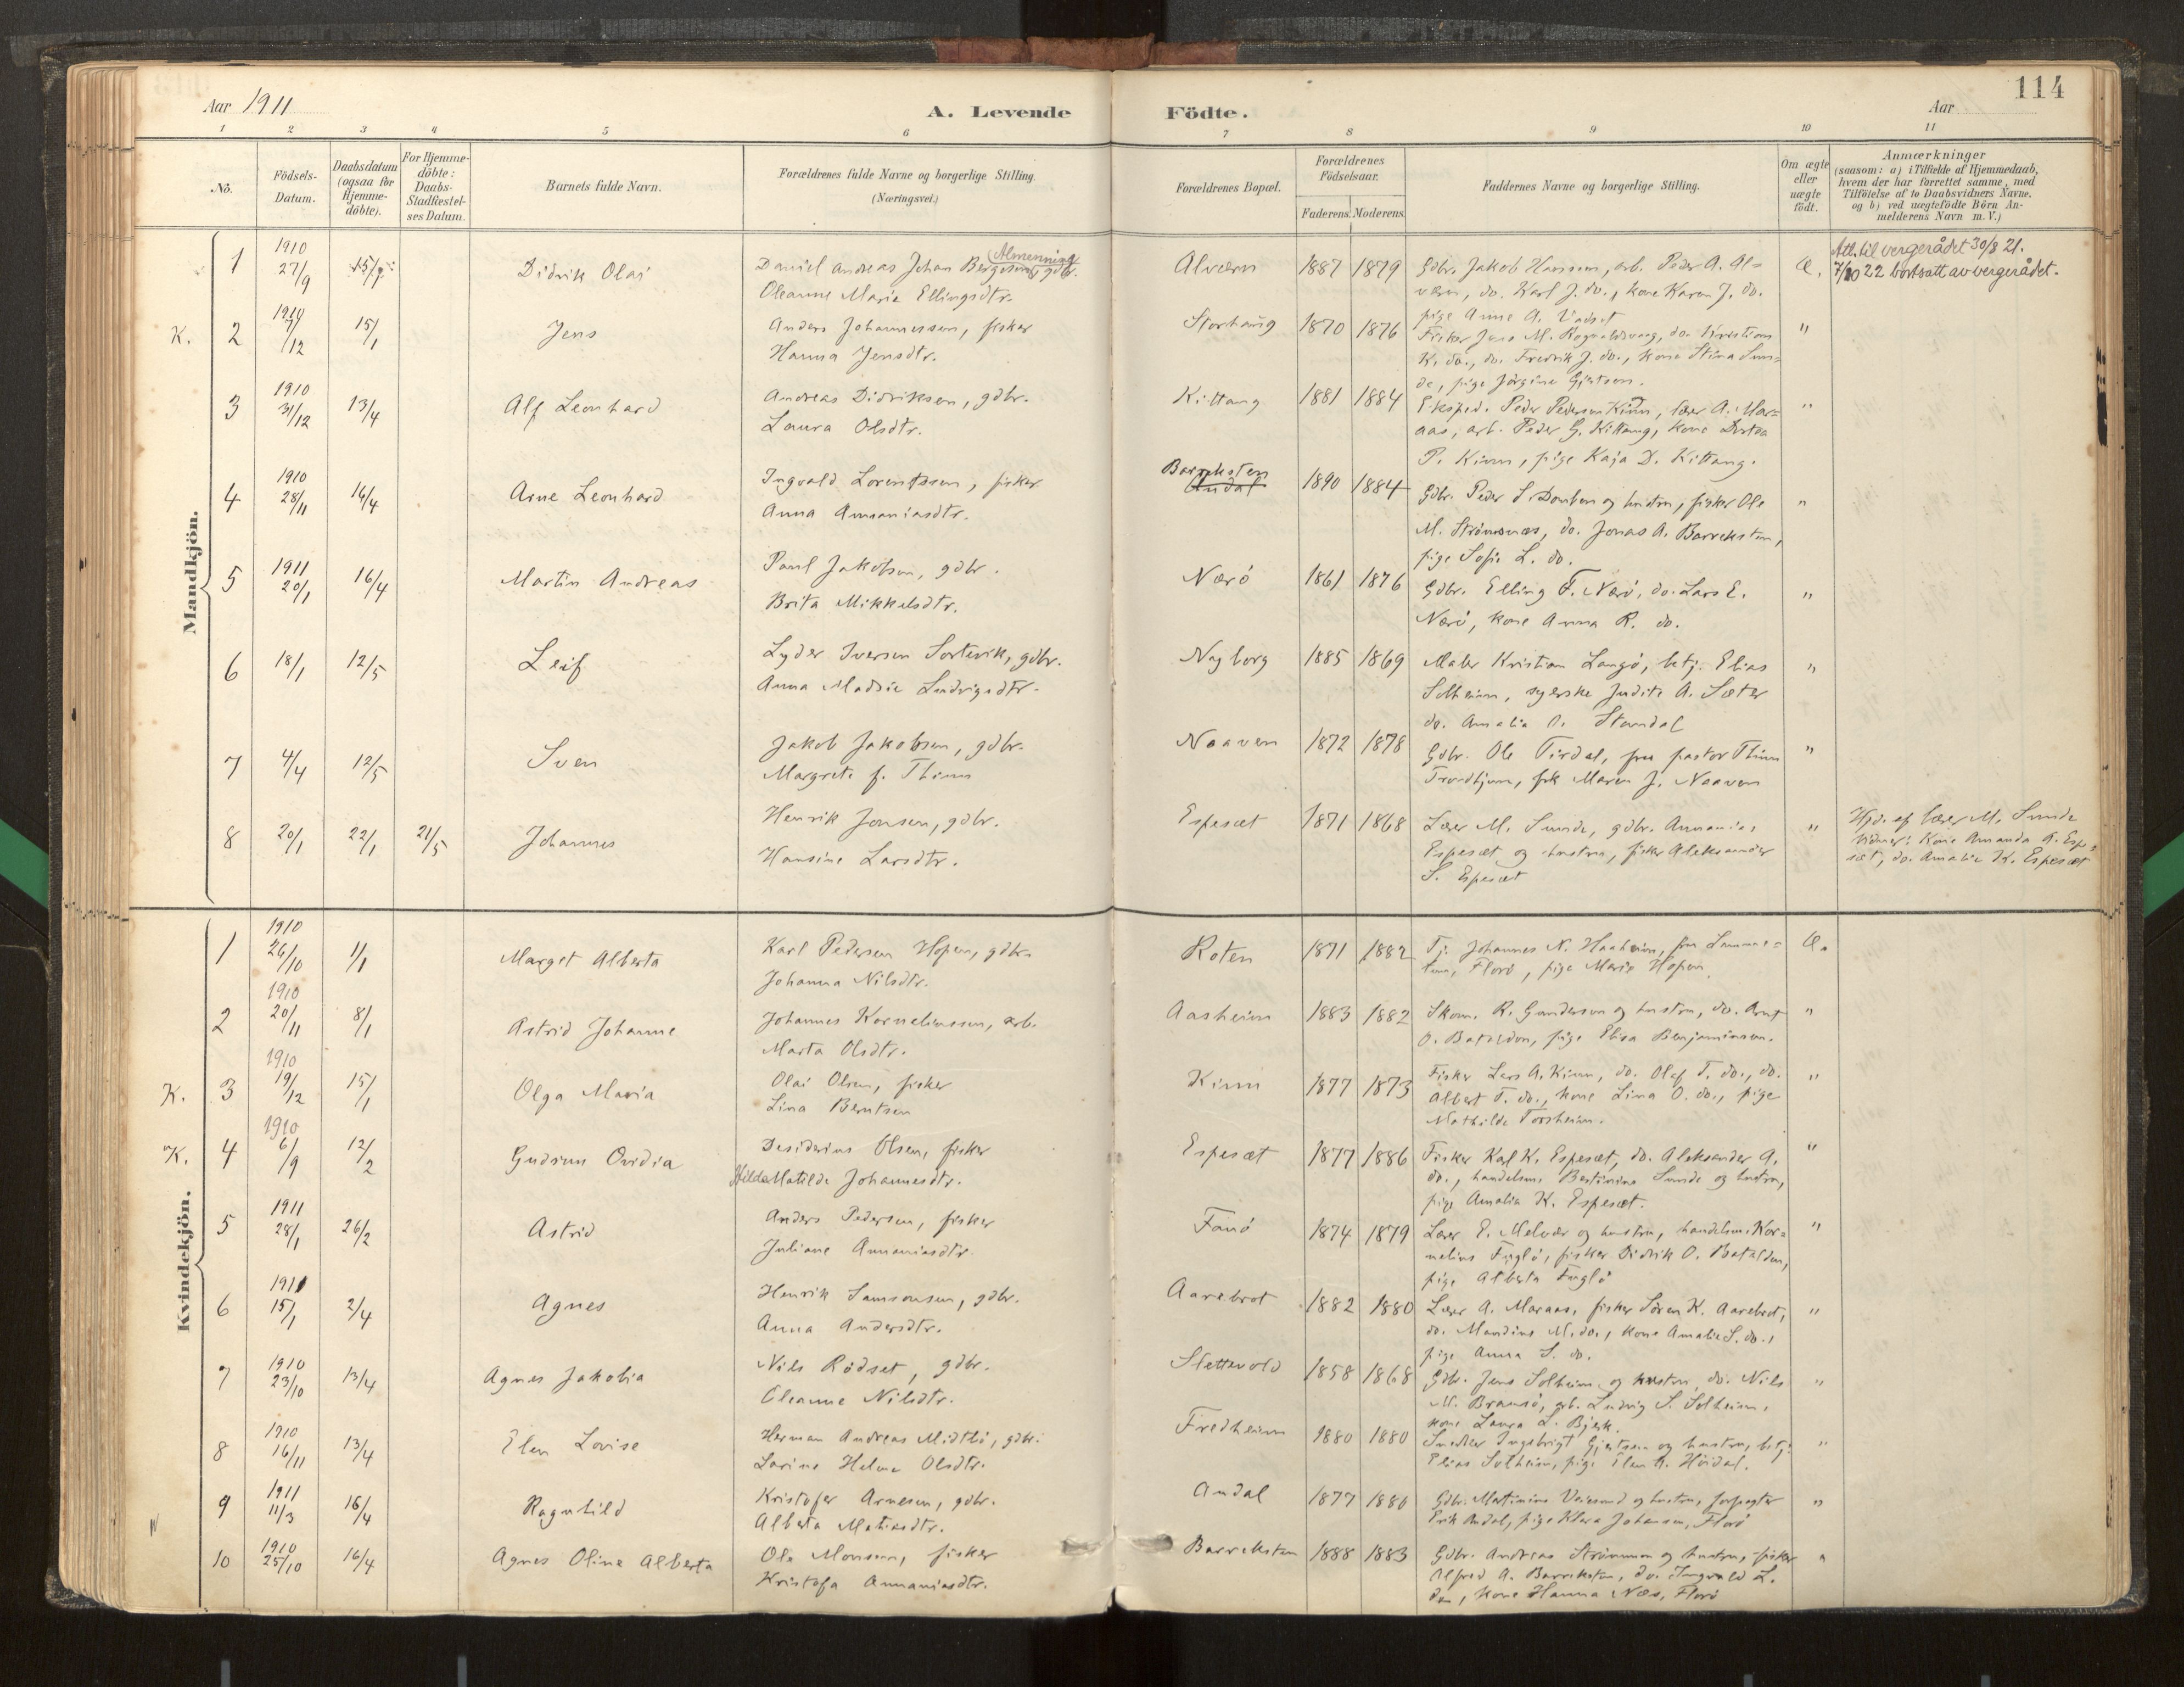 114
Aar 1911
A. Levende Fødte.
Aar
1 2 3 4 5 6 7 8 9 10 11
No.
Födsels-Datum.
Daabsdatum (ogsaa for Hjemme-döbte).
For Hjemme-döbte: Daabs-Stadfæstel-ses Datum.
Barnets fulde Navn.
Forældrenes fulde Navne og borgerlige Stilling.
(Næringsvei.)
Forældrenes Bopæl.
Forældrenes Födselsaar.
Faderens. Moderens.
Faddernes Navne og borgerlige Stilling.
Om ægte eller uægte födt.
Anmærkninger
(saasom: a) i Tilfælde af Hjemmedaab,
hvem der har forrettet samme, med
Tilföielse af to Daabsvidners Navne.
og b) ved uægtefödte Börn An-
melderens Navn m. V.)
Mandkjön.
1 1910 27/9 Didrik Olai
Daniel Andreas Johan Bergesund Almenning gdbr.
Oleanne Marie Ellingsdtr.
Alværn 1887 1879
Gdbr. Jakob Hanssen, arb. Peder A. Al=
værn, do. Karl J. do., kone Karen J. do.
pige Anne A. Vadset
Æ.
Atl. til vergerådet 30/8 21.
7/10 22 bortsatt av vergerådet.
K. 2 1910 7/12 15/1 Jens
Anders Johannessen, fisker
Hanna Jensdtr.
Storhaug 1870 1876
Fisker Jens M. Rognaldsvaag, do. Kristian
K. do., do. Fredrik J. do., kone Stina Sun=
de, pige Jørgine Gjertsen.
"
3 1910 31/12 13/4 Alf Leonhard
Andreas Didriksen, gdbr.
Laura Olsdtr.
Kittang 1881 1884
Eksped. Peder Pedersen Kinn, lærer A. Mar=
aas, arb. Peder G. Kittang, kone
P. Kinn, pige Kaja D. Kittang.
"
4 1910 28/11 16/4 Arne Leonhard
Ingvald Lorentssen, fisker
Anna Annaniasdtr.
Barreksten Andal 1890 1884
Gdbr. Peder S. Domben og hustru, fisker Ole
M. Strømsnæs, do. Jonas A. Barreksten,
pige Sofie L. do.
"
5 1911 20/1 16/4 Martin Andreas
Paul Jakobsen, gdbr.
Brita Mikkelsdtr.
Nærö 1861 1876
Gdbr. Elling F. Nærö, do. Lars E.
Nærö, kone Anna R. do.
"
6 18/1 12/5 Leif
Lyder Iversen Sortevik, gdbr.
Anna Madsie Ludvigsdtr.
Nyborg 1885 1869
Maler Kristian Langö, betj. Elias
Solheim, syerske Judite A. Sæter
do. Amalia O. Standal
"
7 4/4 12/5 Sven
Jakob Jakobsen, gdbr.
Margrete f. Thinn
Naaven 1872 1878
Gdbr. Ole Tirdal, fru pastor Thinn
Trondhjem, frk Maren J. Naaven
"
8 20/1 22/1 21/5 Johannes
Henrik Jonsen, gdbr.
Hansine Larsdtr.
Espesæt 1871 1868
Lærer M. Sunde, gdbr. Annanias
Espesæt og hustru, fisker Aleksander
S. Espesæt
"
Hjd. af lærer M. Sunde
Vidner: Kone Amanda A. Espe=
sæt, do. Amalie K. Espesæt
Kvindekjön.
1 1910 26/10 1/1 Marget Alberta
Karl Pedersen Hopen, gdbr.
Johanna Nilsdtr.
Roten 1871 1882
Tj. Johannes N. Haaheim, fru
Florö, pige Marie Hopen.
Æ.
2 1910 20/11 8/1 Astrid Johanne
Johannes Korneliussen, arb.
Marta Olsdtr.
Aasheim 1883 1882
Skom. R. Gundersen og hustru, do. Arnt
O. Batalden, pige Elisa Benjaminsen.
"
K. 3 1910 19/12 15/1 Olga Maria
Olai Olsen, fisker
Lina Berntsen
Kinn 1877 1873
Fisker Lars A. Kinn, do. Olaf T. do., do.
Albert T. do., kone Lina O. do., pige
Mathilde Torsheim.
"
K. 4 1910 6/9 12/2 Gudrun Ovidia
Desiderius Olsen, fisker
Hilda Matilde Johannesdtr.
Espesæt 1877 1886
Fisker Karl K. Espesæt, do. Aleksander A.
do., handelsm. Bertinius Sunde og hustru,
pige Amalia K. Espesæt.
"
5 1911 28/1 26/2 Astrid
Anders Pedersen, fisker
Juliane Annaniasdtr.
Fanö 1874 1879
Lærer E. Melvær og hustru, handelsm. Kor=
nelius Fuglö, fisker Didrik O. Batalden,
pige Alberta Fuglö
"
6 1911 15/1 2/4 Agnes
Henrik Samsonsen, gdbr.
Anna Andersdtr.
Aarebrot 1882 1880
Lærer A. Maraas, fisker Sören K. Aarebrot,
do. Mandius M. do., kone Amalie S. do.,
pige Anna S. do.
"
7 1910 23/10 13/4 Agnes Jakobia
Nils Rödset, gdbr.
Oleanne Nilsdtr.
Slettevold 1858 1868
Gdbr. Jens Solheim og hustru, do. Nils
M. Bransö, arb. Ludvig S. Solheim,
kone Laura L. Bjerk.
"
8 1910 16/11 13/4 Elen Lovise
Herman Andreas Midtbö, gdbr.
Larine Helene Olsdtr.
Fredheim 1880 1880
Snedker Ingebrigt Gjertsen og hustru, betj.
Elias Solheim, pige Elen A. Höidal.
"
9 1911 11/3 16/4 Ragnhild
Kristofer Arnesen, gdbr.
Alberta Matiasdtr.
Andal 1877 1880
Gdbr. Martinius Veiesund og hustru, forpagter
Erik Andal, pige Klara Johansen, Florö
"
10 1910 25/10 16/4 Agnes Oline Alberta
Ole Monsen, fisker
Kristofa Annaniasdtr.
Barreksten 1888 1883
Gdbr. Andreas Strömmen og hustru, fisker
Alfred A. Barreksten, do. Ingvald L.
do., kone Hanna Næs, Florö
"